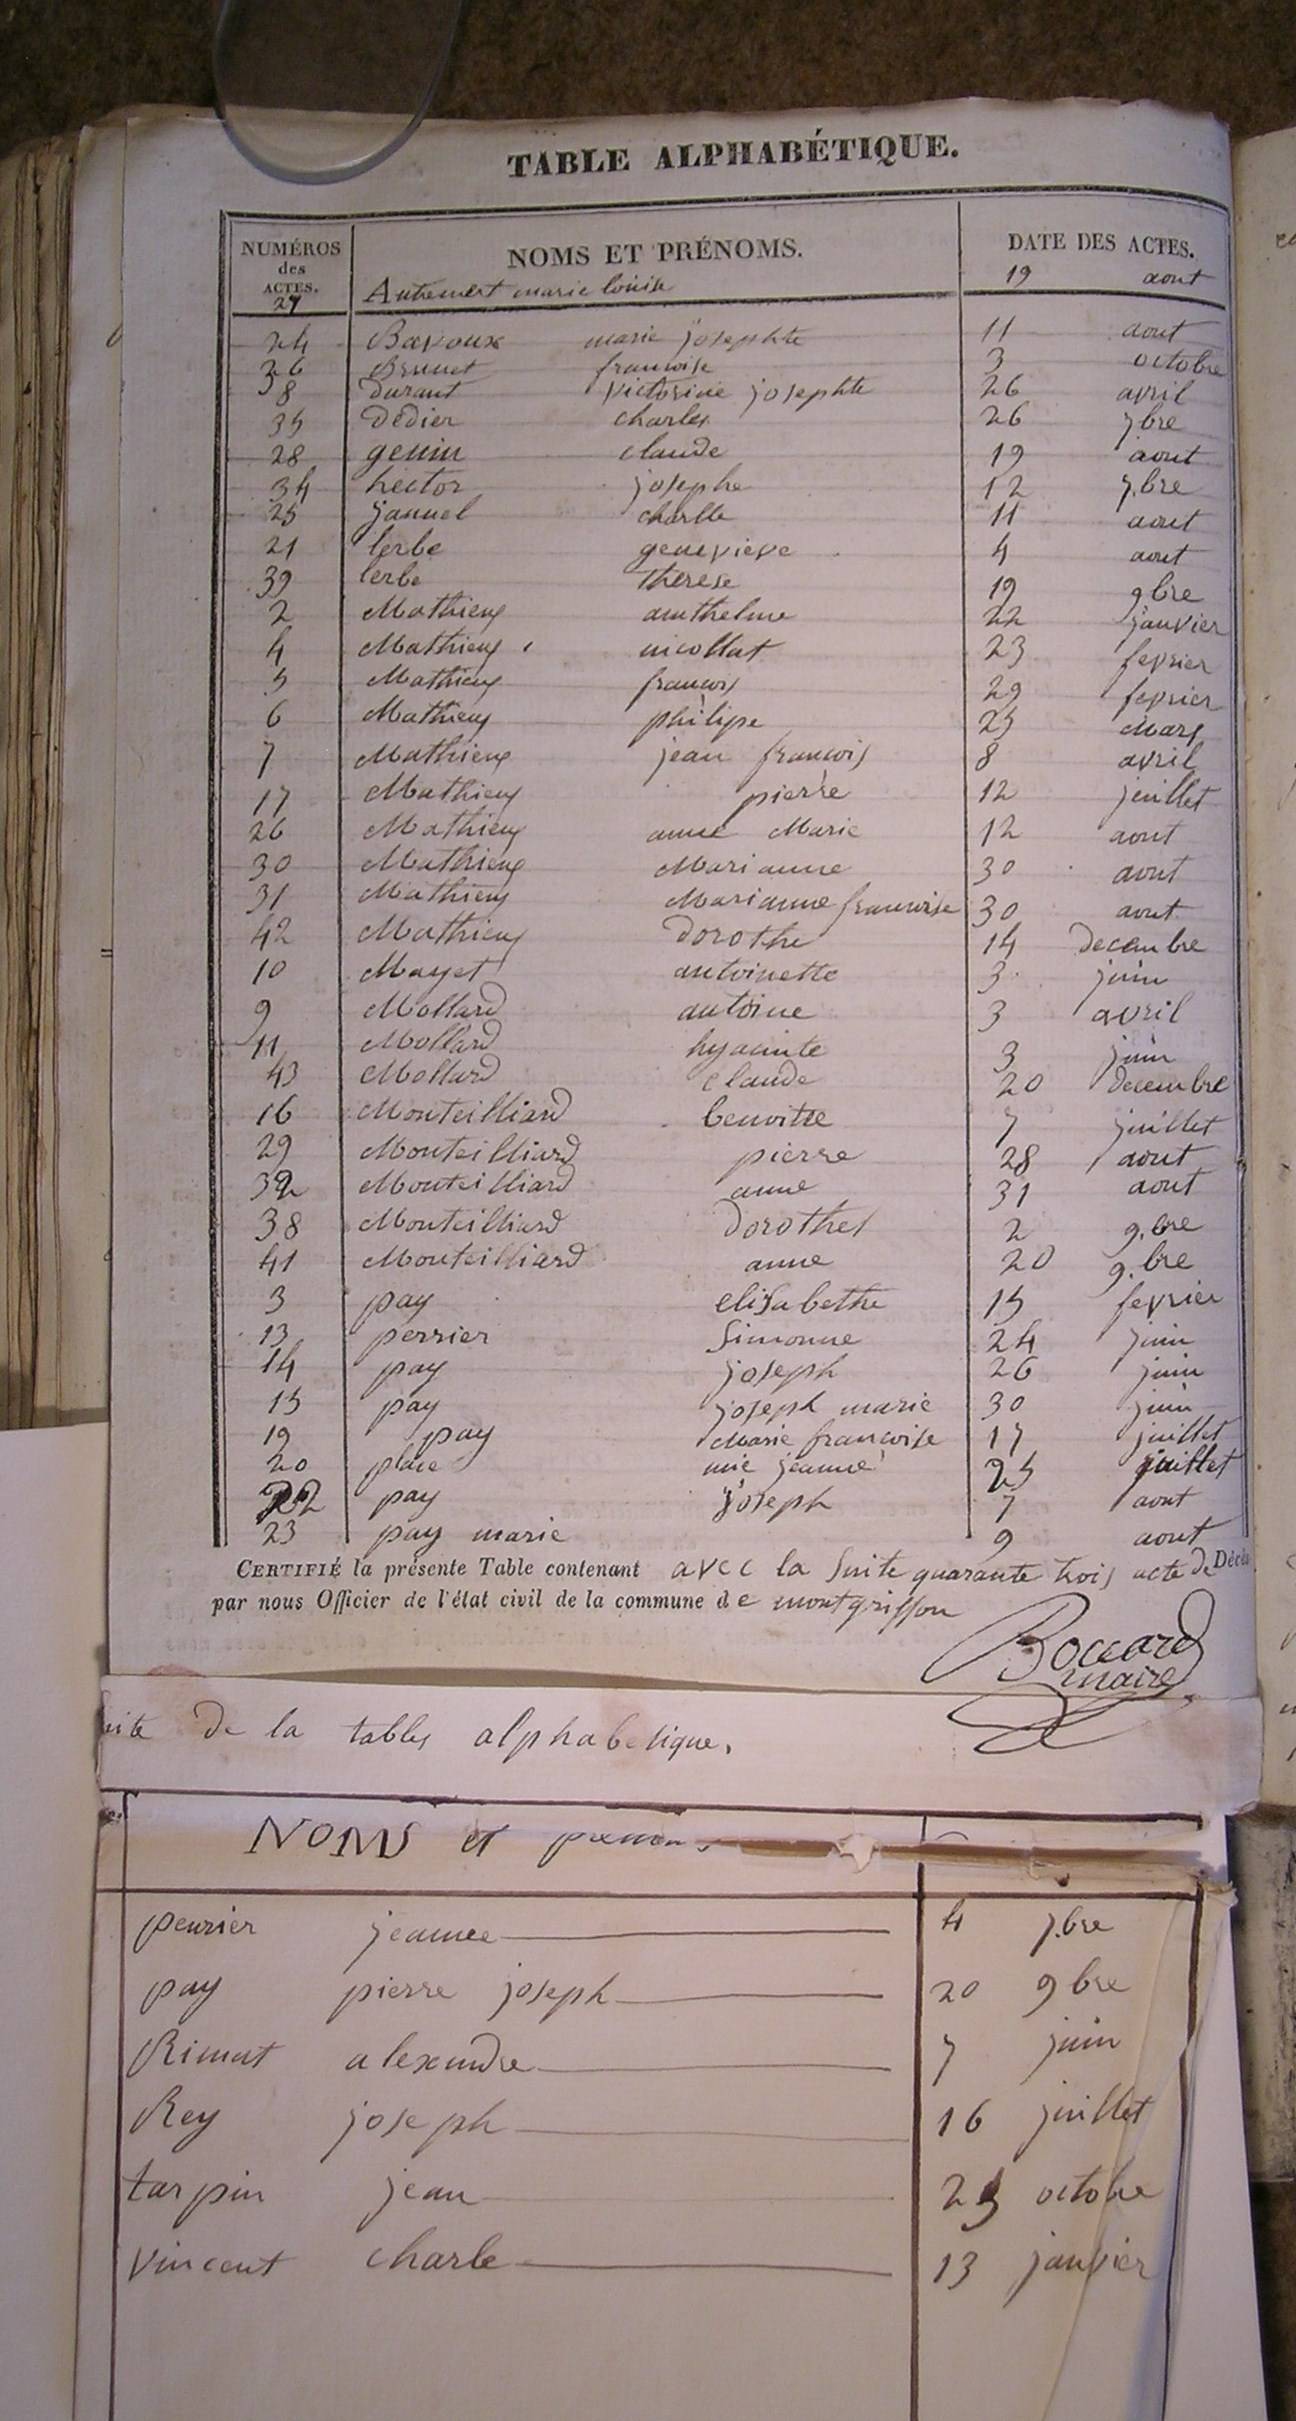 TABLE ALPHABÉTIQUE.
NUMÉROS des ACTES. NOMS ET PRÉNOMS. DATE DES ACTES.
27 Autremert marie louise 19 aout
24 Bavoux marie josephte 11 aout
36 Brunet francoise 3 octobre
8 durant victorine josephte 26 avril
35 dedier charles 26 7bre
28 genin claude 19 aout
34 hector josephe 12 7.bre
25 jannel charlle 11 aout
21 lerbe genevieve 4 aout
39 lerbe therese 19 9bre
2 Mathieux anthelme 22 janvier
4 Mathieux nicollat 23 fevrier
5 Mathieux francois 29 fevrier
6 Mathieux philipe 25 Mars
7 Mathieux jean francois 8 avril
17 Mathieux pierre 12 juillet
26 Mathieux anne Marie 12 aout
30 Mathieux Marianne 30 aout
31 Mathieux Marianne francoise 30 aout
42 Mathieux dorothe 14 decembre
10 Mayet antoinette 3 juin
9 Mollard antoine 3 avril
11 Mollard hyacinte 3 juin
43 Mollard claude 20 decembre
16 Monteilliard benoitte 7 juillet
29 Monteilliard pierre 28 aout
32 Monteilliard anne 31 aout
38 Monteilliard dorothes 2 9.bre
41 Monteilliard anne 20 9.bre
3 pay elisabethe 15 fevrier
13 perrier Simonne 24 juin
14 pay joseph 26 juin
15 pay joseph marie 30 juin
19 pay Marie francoise 17 juillet
20 place mie jeanne 25 juillet
22 pay joseph 7 aout
23 pay marie 9 aout
CERTIFIÉ la présente Table contenant avec la Suite quarante trois acte de Décès
par nous Officier de l'état civil de la commune de montgriffon
Boccard
maire
uite de la tables alphabetique.
NOMS et prenoms
peurier jeanne 4 7.bre
pay pierre joseph 20 9bre
Rimat alexandre 7 juin
Rey joseph 16 juillet
tarpin jean 25 octobre
Vincent charle 13 janvier